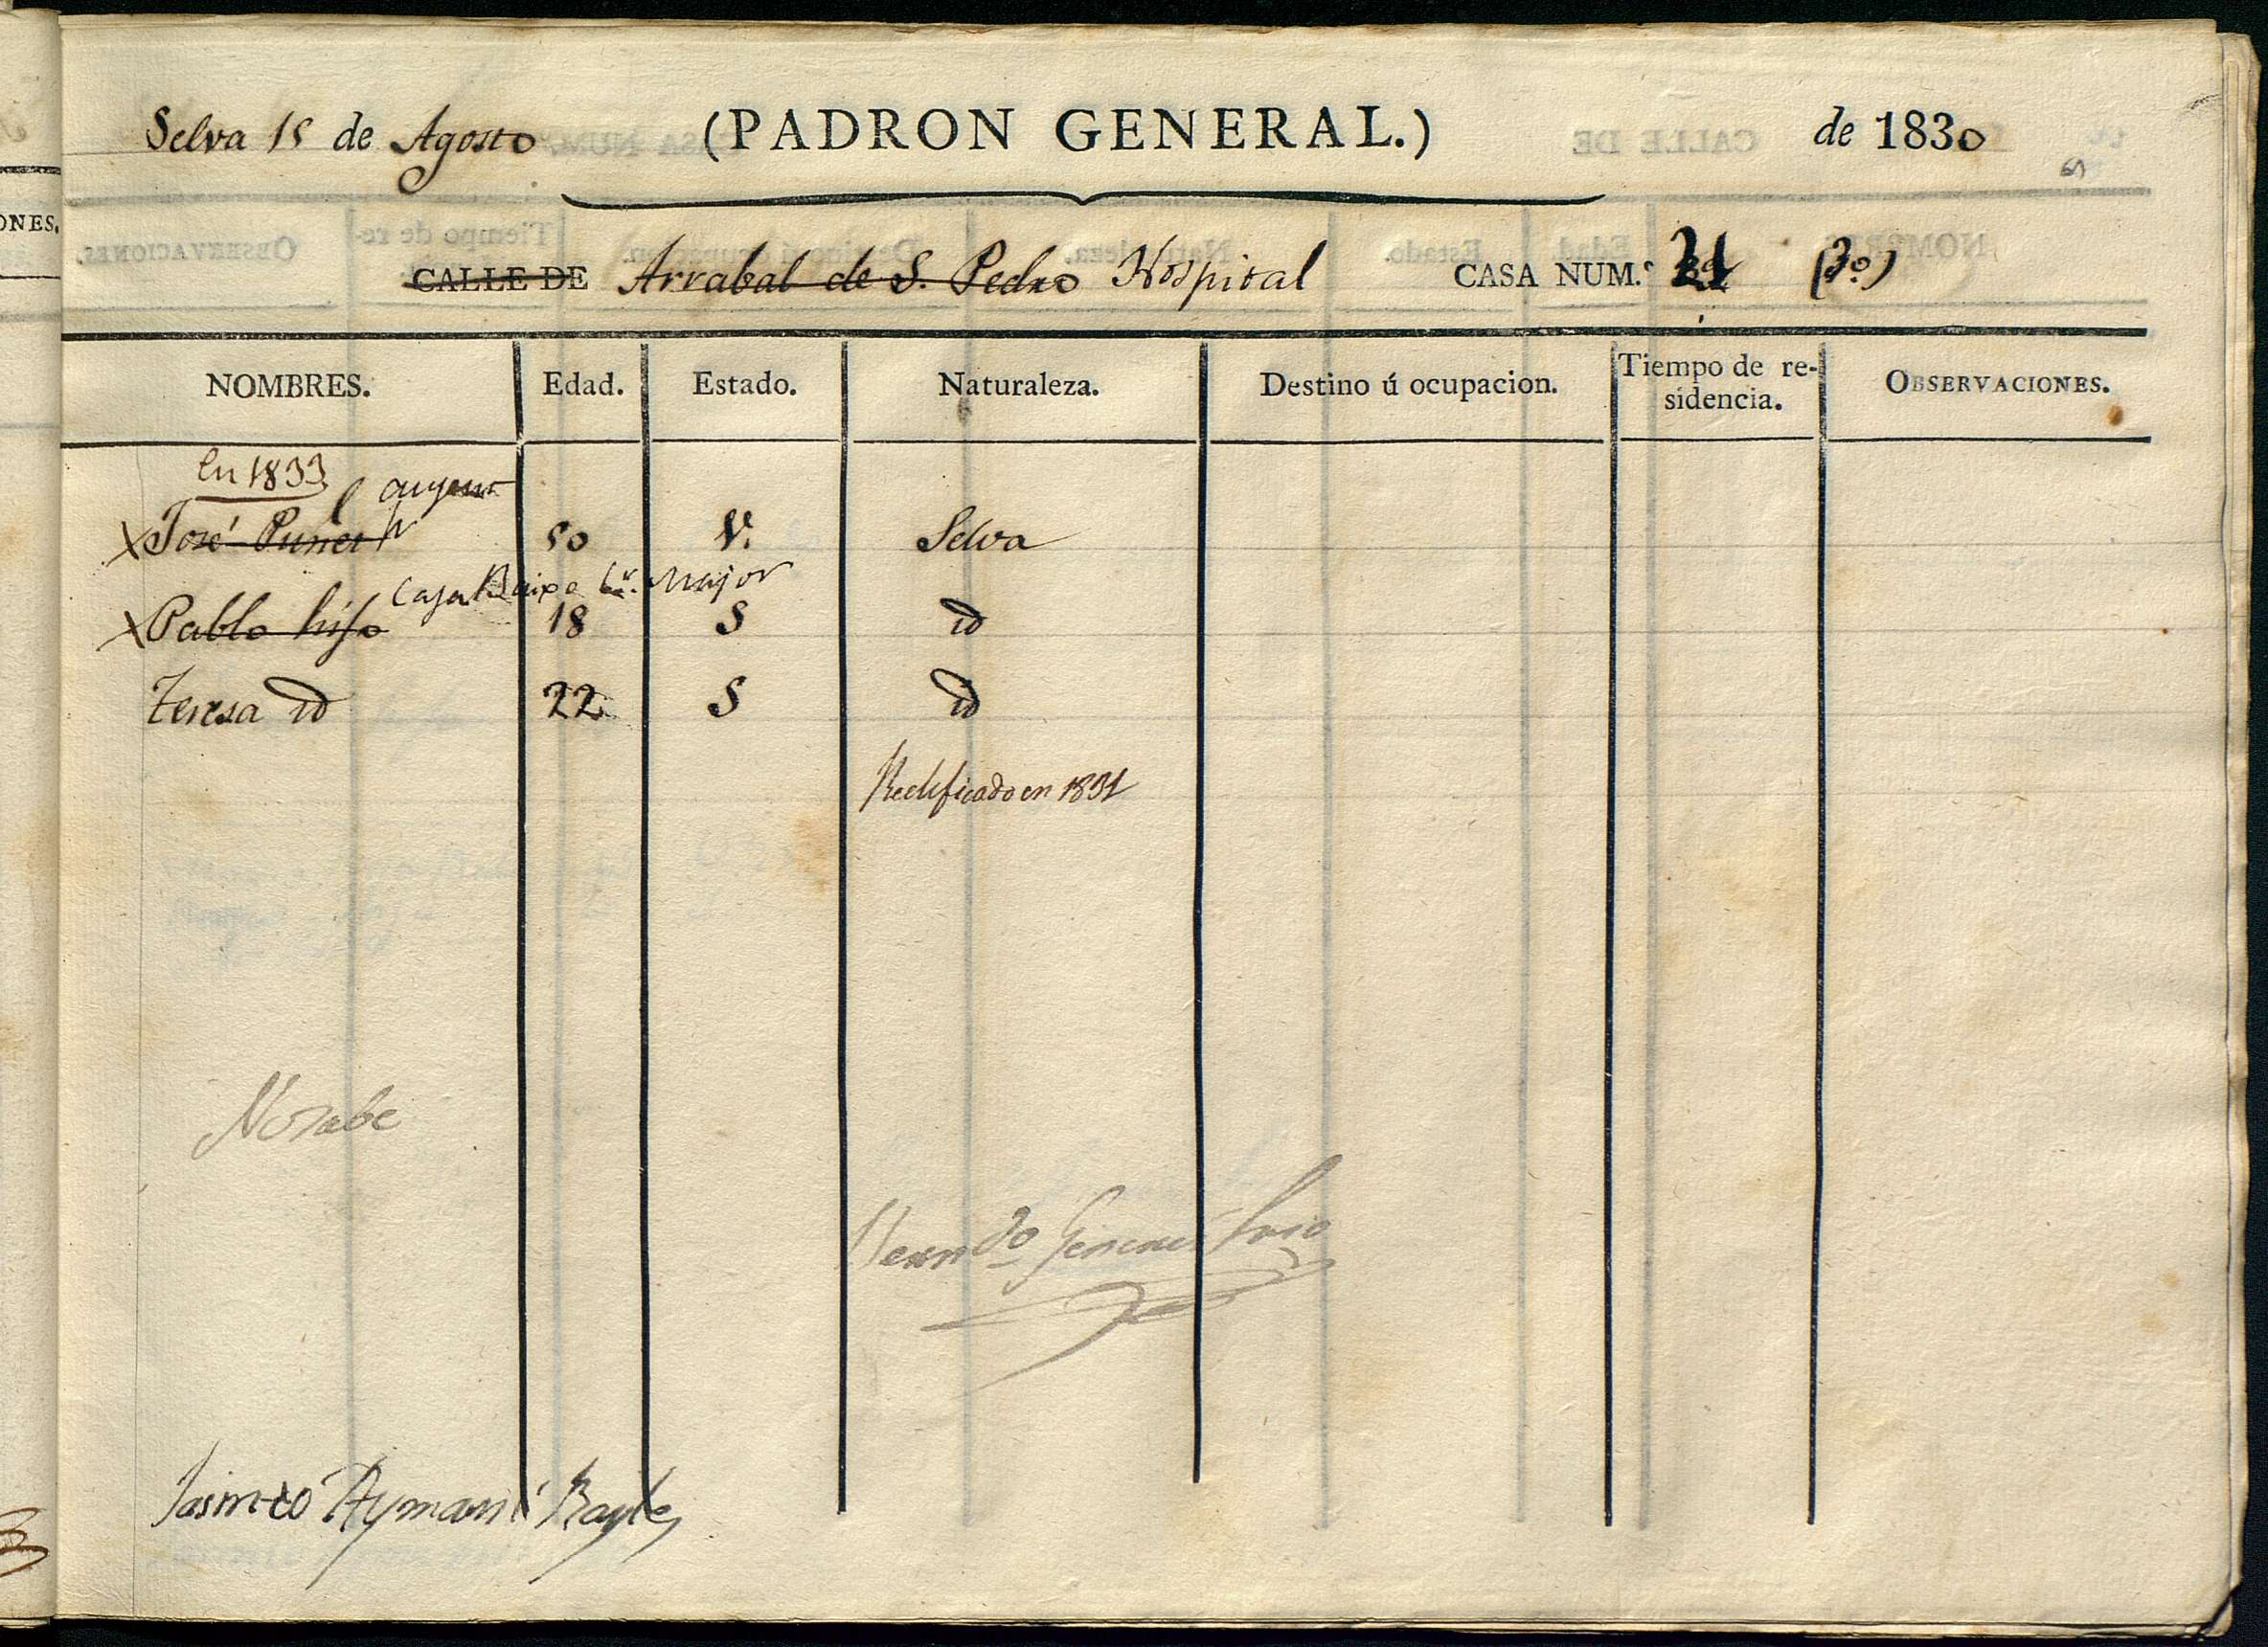 Selva 15 de Agosto (PADRON GENERAL.) de 1830
CALLE DE Arrabal de S. Pedro Hospital CASA NUM.º 21
NOMBRES. Edad. Estado. Naturaleza. Destino ú ocupacion. Tiempo de re-sidencia. OBSERVACIONES.
En 1833
X José Punet 50 V. Selva
Casa Major
X Pablo hijo 18 S id
Teresa id 22 S id
Rectificado en 1831
No sabe
Srio
Jasinto Aymamí Bayle
ONES.